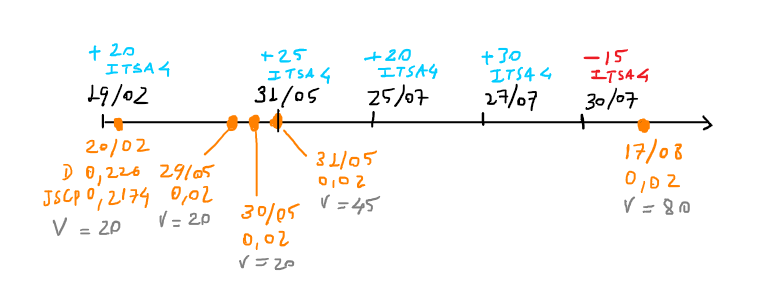 +20
ITSA4
19/02
+25
ITSA4
31/05
+20
ITSA4
25/07
+30
ITSA4
27/07
-15
ITSA4
30/07
20/02
D 0,226
JSCP 0,2174
V = 20
29/05
0,02
V = 20
30/05
0,02
V = 20
31/05
0,02
V = 45
17/08
0,02
V = 80